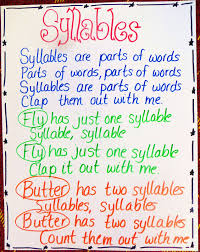 Syllables
Syllables are parts of words
Parts of words, parts of words
Syllables are parts of words
Clap them out with me.
Fly has just one syllable
Syllable, syllable
Fly has just one syllable
Clap it out with me.
Butter has two syllables
Syllables, syllables
Butter has two syllables
Count them out with me